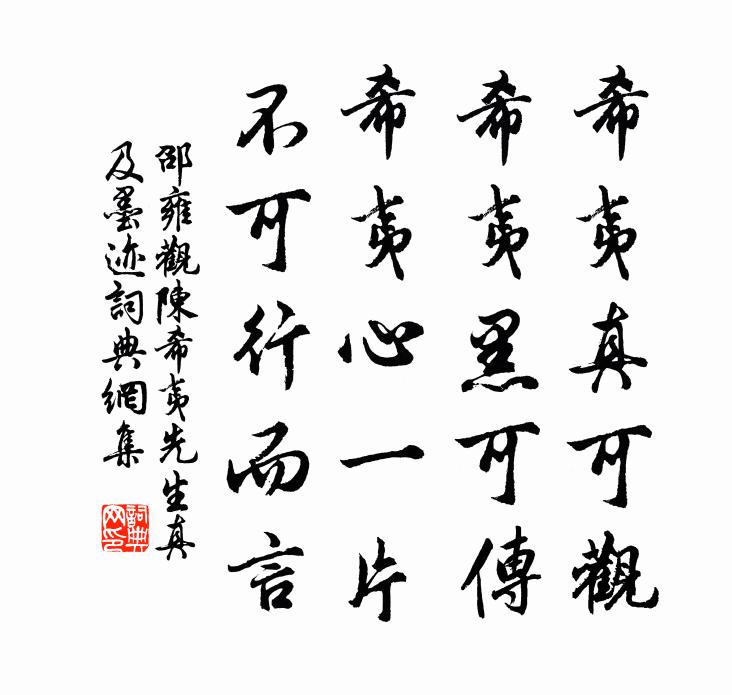 希夷真可觀
希夷黑可傳
希夷心一片
不可行而言
邵雍觀陳希夷先生真
及墨迹詞典網集
詞典
网印